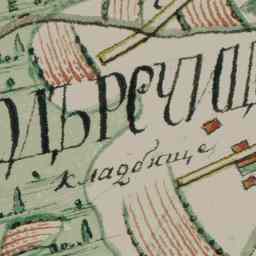 одъречищ
кладбище